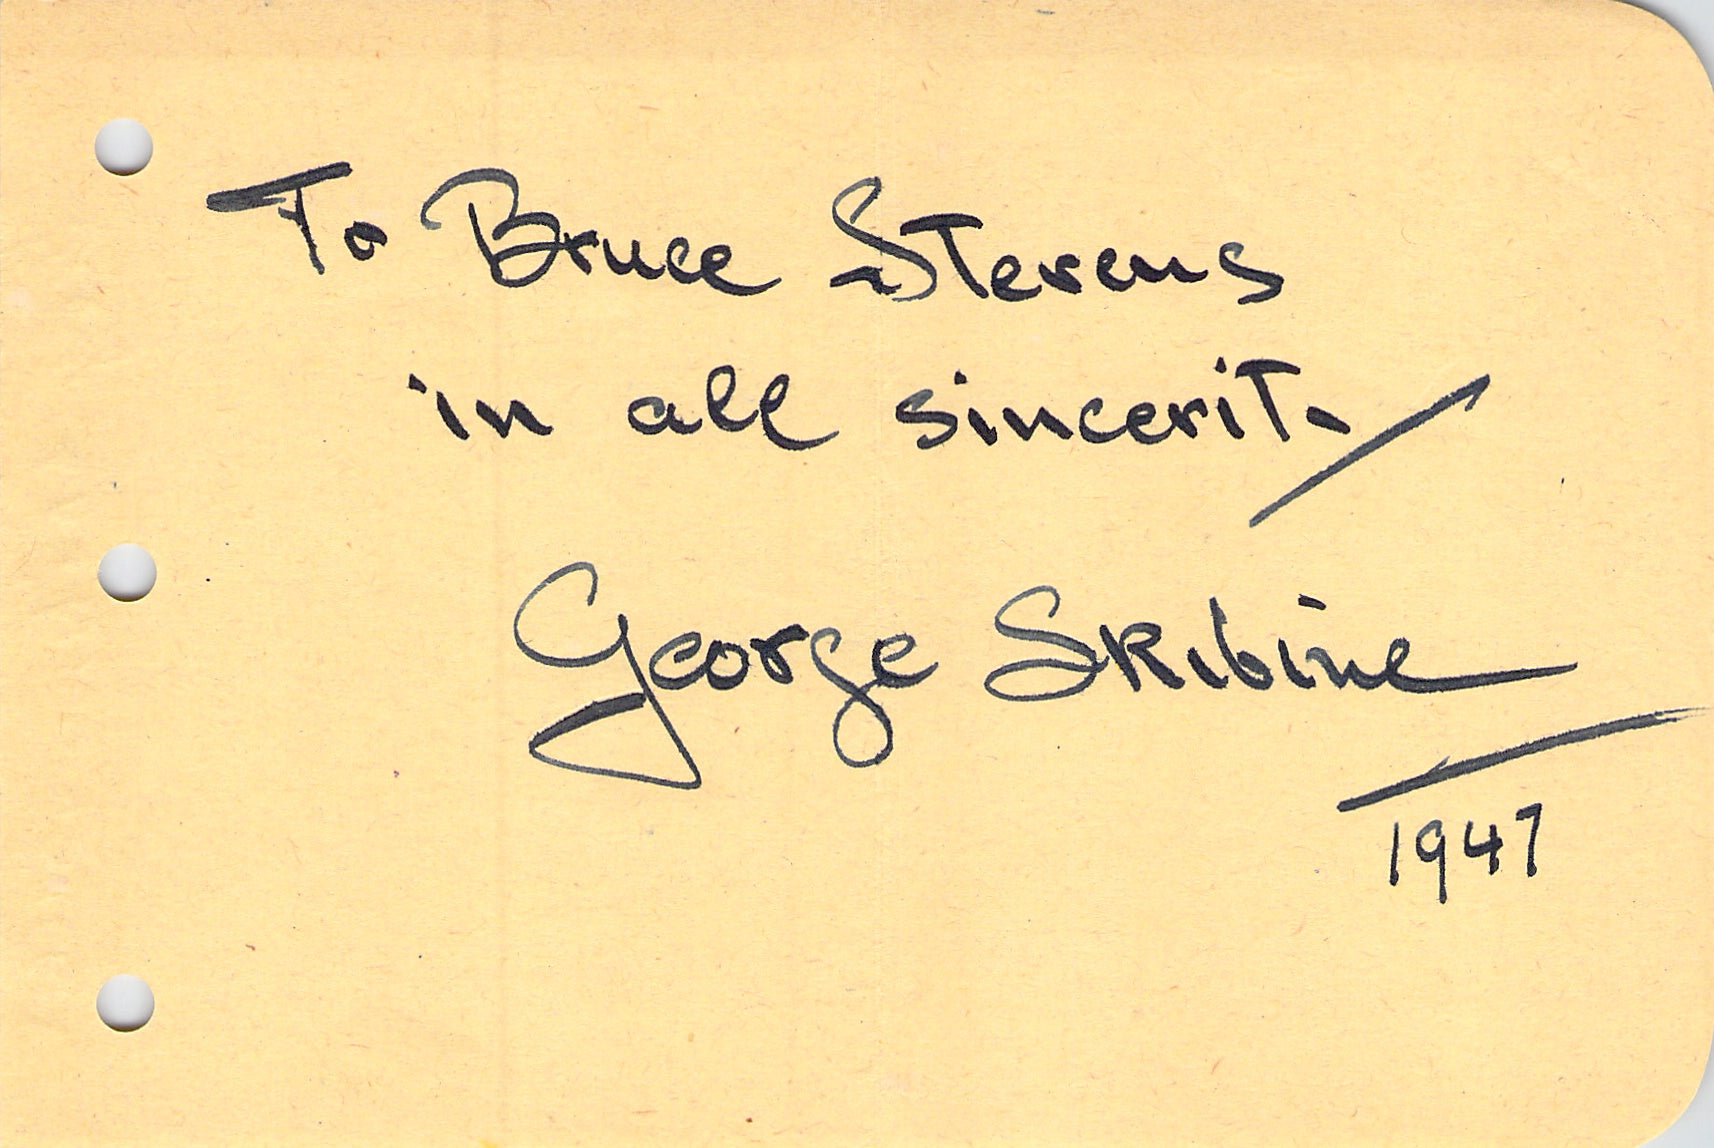 To Bruce Stevens
in all sincerity
George Skibine
1947